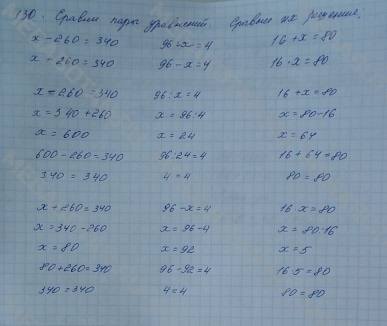 130. Сравни пары уравнений Сравни их решения.
x - 260 = 340 96 : x = 4 16 + x = 80
x + 260 = 340 96 - x = 4 16 · x = 80
x - 260 = 340 96 : x = 4 16 + x = 80
x = 340 + 260 x = 96 : 4 x = 80 - 16
x = 600 x = 24 x = 64
600 - 260 = 340 96 : 24 = 4 16 + 64 = 80
340 = 340 4 = 4 80 = 80
x + 260 = 340 96 - x = 4 16 · x = 80
x = 340 - 260 x = 96 - 4 x = 80 : 16
x = 80 x = 92 x = 5
80 + 260 = 340 96 - 92 = 4 16 · 5 = 80
340 = 340 4 = 4 80 = 80